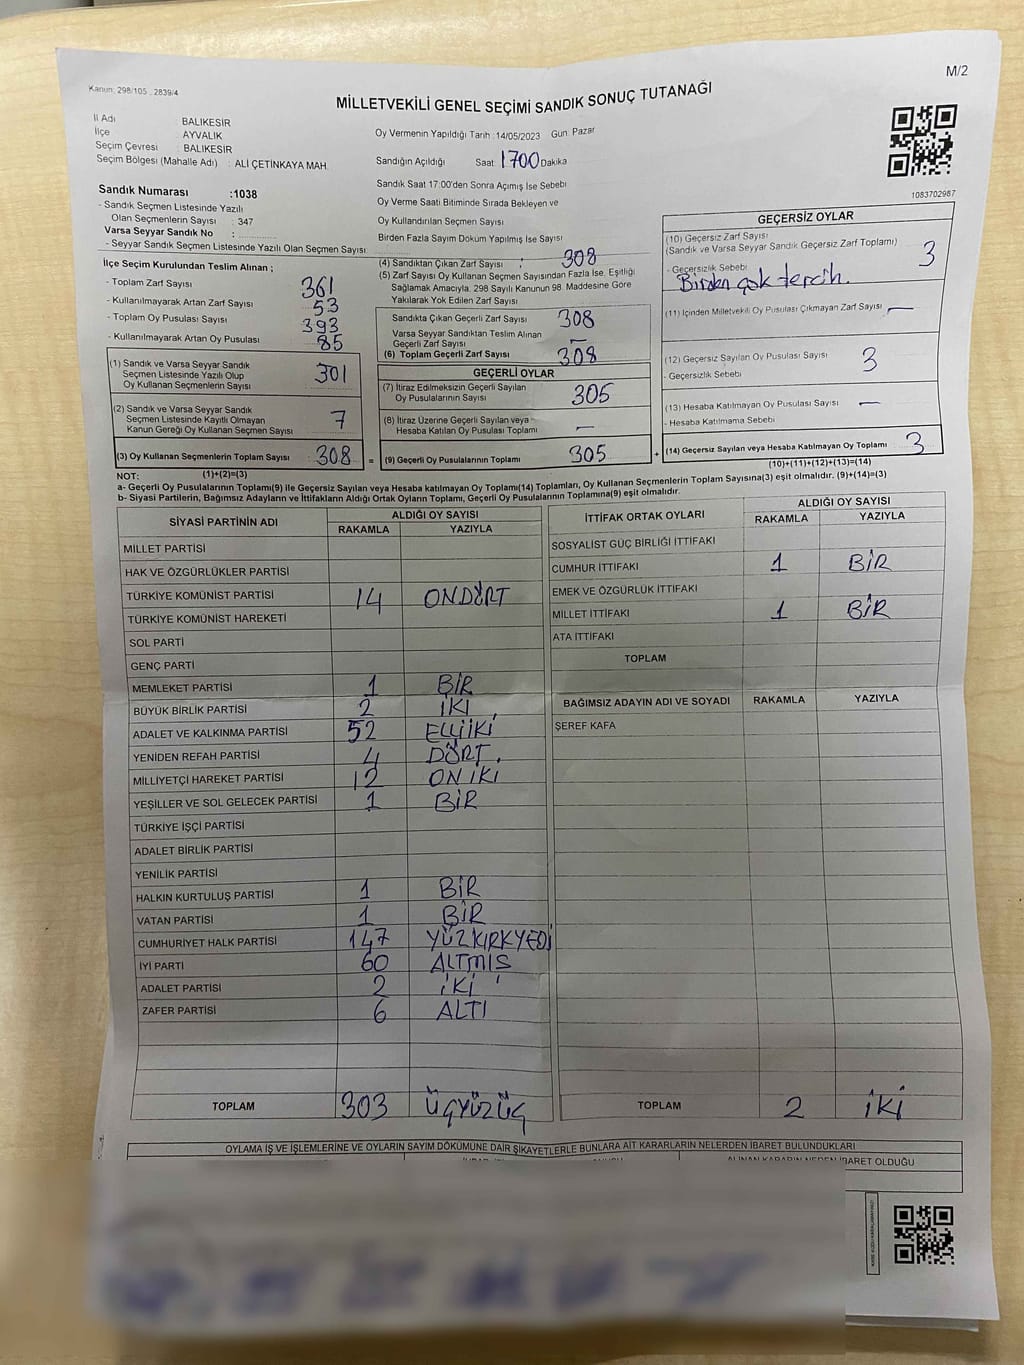 M/2
Kanun: 298/105 , 2839/4
MİLLETVEKİLİ GENEL SEÇİMİ SANDIK SONUÇ TUTANAĞI
İl Adı : BALIKESİR
İlçe : AYVALIK
Seçim Çevresi : BALIKESİR
Seçim Bölgesi (Mahalle Adı) : ALİ ÇETİNKAYA MAH.
Sandık Numarası :1038
- Sandık Seçmen Listesinde Yazılı
Olan Seçmenlerin Sayısı : 347
Varsa Seyyar Sandık No :
- Seyyar Sandık Seçmen Listesinde Yazılı Olan Seçmen Sayısı
İlçe Seçim Kurulundan Teslim Alınan ;
- Toplam Zarf Sayısı 361
- Kullanılmayarak Artan Zarf Sayısı 53
- Toplam Oy Pusulası Sayısı 393
- Kullanılmayarak Artan Oy Pusulası 85
(1) Sandık ve Varsa Seyyar Sandık
Seçmen Listesinde Yazılı Olup
Oy Kullanan Seçmenlerin Sayısı 301
(2) Sandık ve Varsa Seyyar Sandık
Seçmen Listesinde Kayıtlı Olmayan
Kanun Gereği Oy Kullanan Seçmen Sayısı 7
(3) Oy Kullanan Seçmenlerin Toplam Sayısı 308 =
(1)+(2)=(3)
Oy Vermenin Yapıldığı Tarih :14/05/2023 Gün: Pazar
Sandığın Açıldığı Saat 1700 Dakika
Sandık Saat 17:00'den Sonra Açımış İse Sebebi
Oy Verme Saati Bitiminde Sırada Bekleyen ve
Oy Kullandırılan Seçmen Sayısı
Birden Fazla Sayım Döküm Yapılmış İse Sayısı
(4) Sandıktan Çıkan Zarf Sayısı : 308
(5) Zarf Sayısı Oy Kullanan Seçmen Sayısından Fazla İse, Eşitliği
Sağlamak Amacıyla, 298 Sayılı Kanunun 98. Maddesine Göre
Yakılarak Yok Edilen Zarf Sayısı
Sandıkta Çıkan Geçerli Zarf Sayısı 308
Varsa Seyyar Sandıktan Teslim Alınan
Geçerli Zarf Sayısı —
(6) Toplam Geçerli Zarf Sayısı 308
GEÇERLİ OYLAR
(7) İtiraz Edilmeksizin Geçerli Sayılan
Oy Pusulalarının Sayısı 305
(8) İtiraz Üzerine Geçerli Sayılan veya
Hesaba Katılan Oy Pusulası Toplamı —
(9) Geçerli Oy Pusulalarının Toplamı 305 +
1083702987
GEÇERSİZ OYLAR
(10) Geçersiz Zarf Sayısı
(Sandık ve Varsa Seyyar Sandık Geçersiz Zarf Toplamı) 3
- Geçersizlik Sebebi
Birden çok tercih.
(11) İçinden Milletvekili Oy Pusulası Çıkmayan Zarf Sayısı —
(12) Geçersiz Sayılan Oy Pusulası Sayısı 3
- Geçersizlik Sebebi
(13) Hesaba Katılmayan Oy Pusulası Sayısı —
- Hesaba Katılmama Sebebi
(14) Geçersiz Sayılan veya Hesaba Katılmayan Oy Toplamı 3
(10)+(11)+(12)+(13)=(14)
NOT:
a- Geçerli Oy Pusulalarının Toplamı(9) ile Geçersiz Sayılan veya Hesaba katılmayan Oy Toplamı(14) Toplamları, Oy Kullanan Seçmenlerin Toplam Sayısına(3) eşit olmalıdır. (9)+(14)=(3)
b- Siyasi Partilerin, Bağımsız Adayların ve İttifakların Aldığı Ortak Oyların Toplamı, Geçerli Oy Pusulalarının Toplamına(9) eşit olmalıdır.
SİYASİ PARTİNİN ADI ALDIĞI OY SAYISI
RAKAMLA YAZIYLA
MİLLET PARTİSİ
HAK VE ÖZGÜRLÜKLER PARTİSİ
TÜRKİYE KOMÜNİST PARTİSİ 14 ONDÖRT
TÜRKİYE KOMÜNİST HAREKETİ
SOL PARTİ
GENÇ PARTİ
MEMLEKET PARTİSİ 1 BİR
BÜYÜK BİRLİK PARTİSİ 2 İKİ
ADALET VE KALKINMA PARTİSİ 52 ELLİİKİ
YENİDEN REFAH PARTİSİ 4 DÖRT.
MİLLİYETÇİ HAREKET PARTİSİ 12 ONİKİ
YEŞİLLER VE SOL GELECEK PARTİSİ 1 BİR
TÜRKİYE İŞÇİ PARTİSİ
ADALET BİRLİK PARTİSİ
YENİLİK PARTİSİ
HALKIN KURTULUŞ PARTİSİ 1 BİR
VATAN PARTİSİ 1 BİR
CUMHURİYET HALK PARTİSİ 147 YÜZKIRKYEDİ
İYİ PARTİ 60 ALTMIŞ
ADALET PARTİSİ 2 İKİ
ZAFER PARTİSİ 6 ALTI
TOPLAM 303 ÜÇYÜZÜÇ
İTTİFAK ORTAK OYLARI ALDIĞI OY SAYISI
RAKAMLA YAZIYLA
SOSYALİST GÜÇ BİRLİĞİ İTTİFAKI
CUMHUR İTTİFAKI 1 BİR
EMEK VE ÖZGÜRLÜK İTTİFAKI
MİLLET İTTİFAKI 1 BİR
ATA İTTİFAKI
TOPLAM
BAĞIMSIZ ADAYIN ADI VE SOYADI RAKAMLA YAZIYLA
ŞEREF KAFA
TOPLAM 2 İKİ
OYLAMA İŞ VE İŞLEMLERİNE VE OYLARIN SAYIM DÖKÜMÜNE DAİR ŞİKAYETLERLE BUNLARA AİT KARARLARIN NELERDEN İBARET BULUNDUKLARI
ALINAN KARARIN NEDEN İBARET OLDUĞU